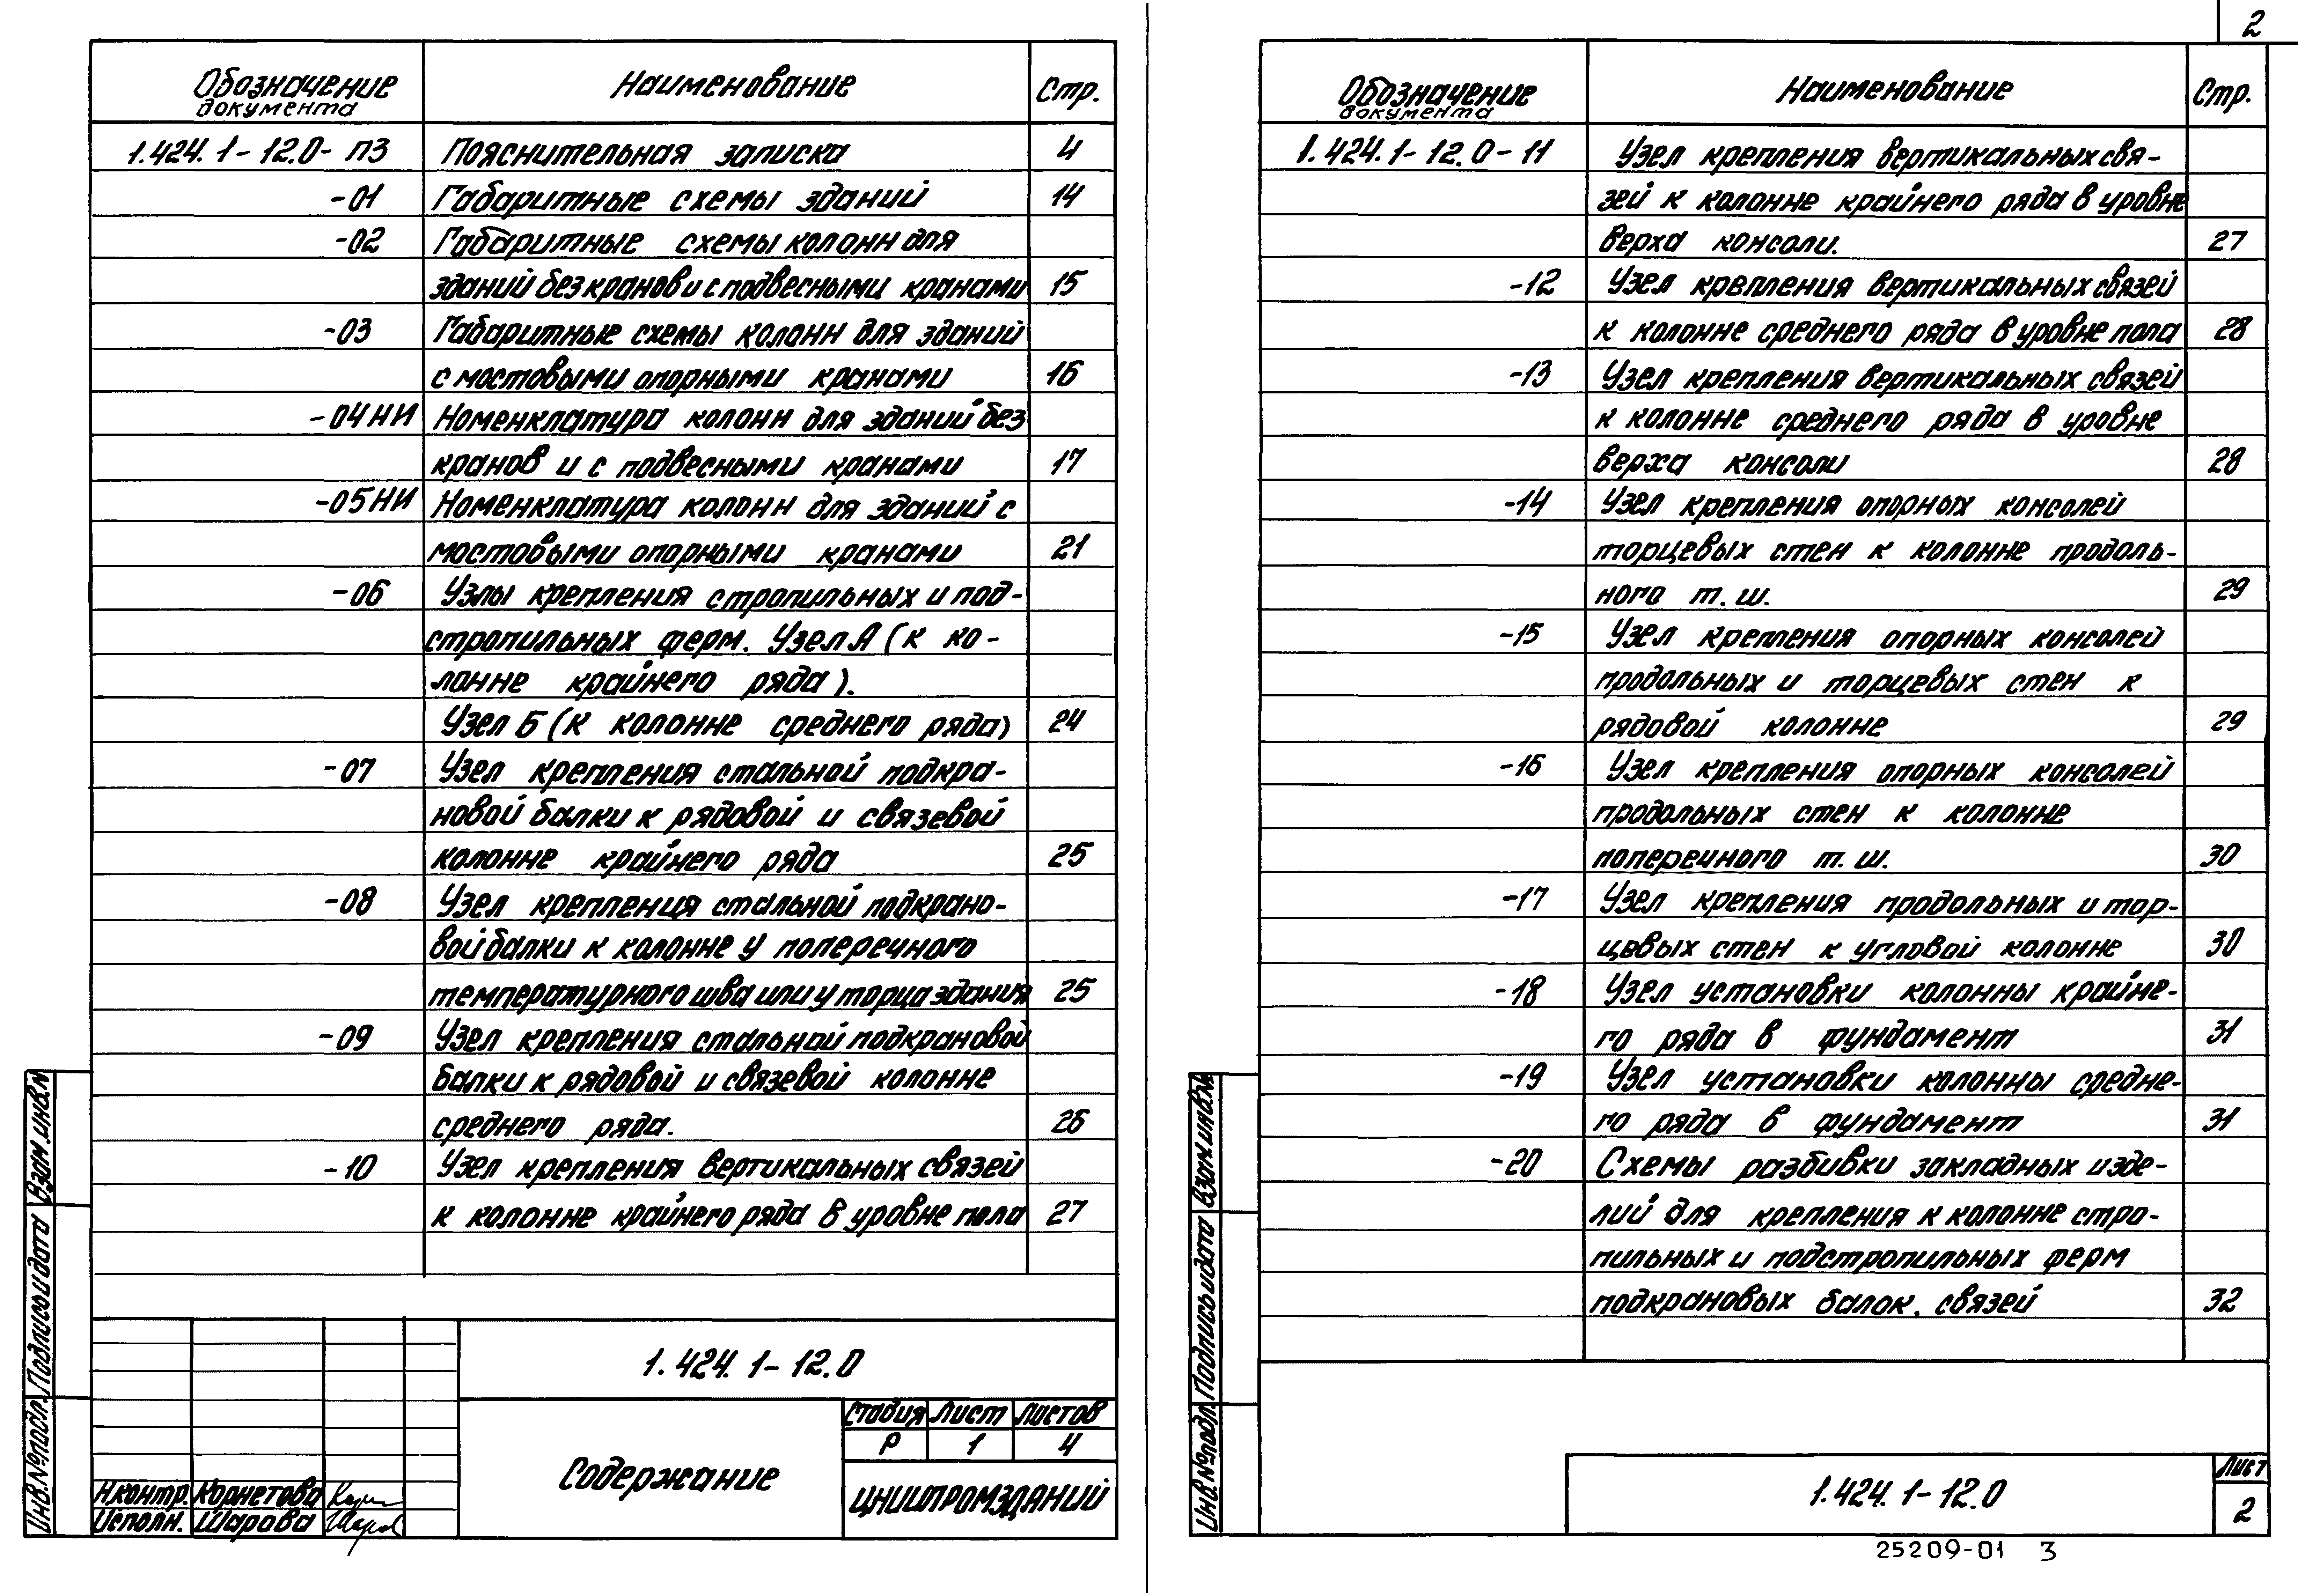 Обозначение документа Наименование Стр.
1.424.1-12.0-ПЗ Пояснительная записка 4
-01 Габаритные схемы зданий 14
-02 Габаритные схемы колонн для
зданий без кранов и с подвесными кранами 15
-03 Габаритные схемы колонн для зданий
с мостовыми опорными кранами 16
-04НИ Номенклатура колонн для зданий без
кранов и с подвесными кранами 17
-05НИ Номенклатура колонн для зданий с
мостовыми опорными кранами 21
-06 Узлы крепления стропильных и под-
стропильных ферм. Узел А (к ко-
лонне крайнего ряда).
Узел Б (к колонне среднего ряда) 24
-07 Узел крепления стальной подкра-
новой балки к рядовой и связевой
колонне крайнего ряда 25
-08 Узел крепления стальной подкрано-
вой балки к колонне у поперечного
температурного шва или у торца здания 25
-09 Узел крепления стальной подкрановой
балки к рядовой и связевой колонне
среднего ряда. 26
-10 Узел крепления вертикальных связей
к колонне крайнего ряда в уровне пола 27
1.424.1-12.0
Содержание
Стадия Лист Листов
Р 1 4
ЦНИИПРОМЗДАНИЙ
Н.контр. Корнетова
Исполн. Шарова
Инв.№подл. Подпись и дата Взам.инв.№
2
Обозначение документа Наименование Стр.
1.424.1-12.0-11 Узел крепления вертикальных свя-
зей к колонне крайнего ряда в уровне
верха консоли. 27
-12 Узел крепления вертикальных связей
к колонне среднего ряда в уровне пола 28
-13 Узел крепления вертикальных связей
к колонне среднего ряда в уровне
верха консоли 28
-14 Узел крепления опорных консолей
торцевых стен к колонне продоль-
ного т.ш. 29
-15 Узел крепления опорных консолей
продольных и торцевых стен к
рядовой колонне 29
-16 Узел крепления опорных консолей
продольных стен к колонне
поперечного т.ш. 30
-17 Узел крепления продольных и тор-
цевых стен к угловой колонне 30
-18 Узел установки колонны крайне-
го ряда в фундамент 31
-19 Узел установки колонны средне-
го ряда в фундамент 31
-20 Схемы разбивки закладных изде-
лий для крепления к колонне стро-
пильных и подстропильных ферм
подкрановых балок, связей 32
1.424.1-12.0
Лист
2
Инв.№подл. Подпись и дата Взам.инв.№
25209-01 3